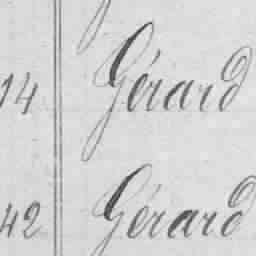 14 Gérard
42 Gérard